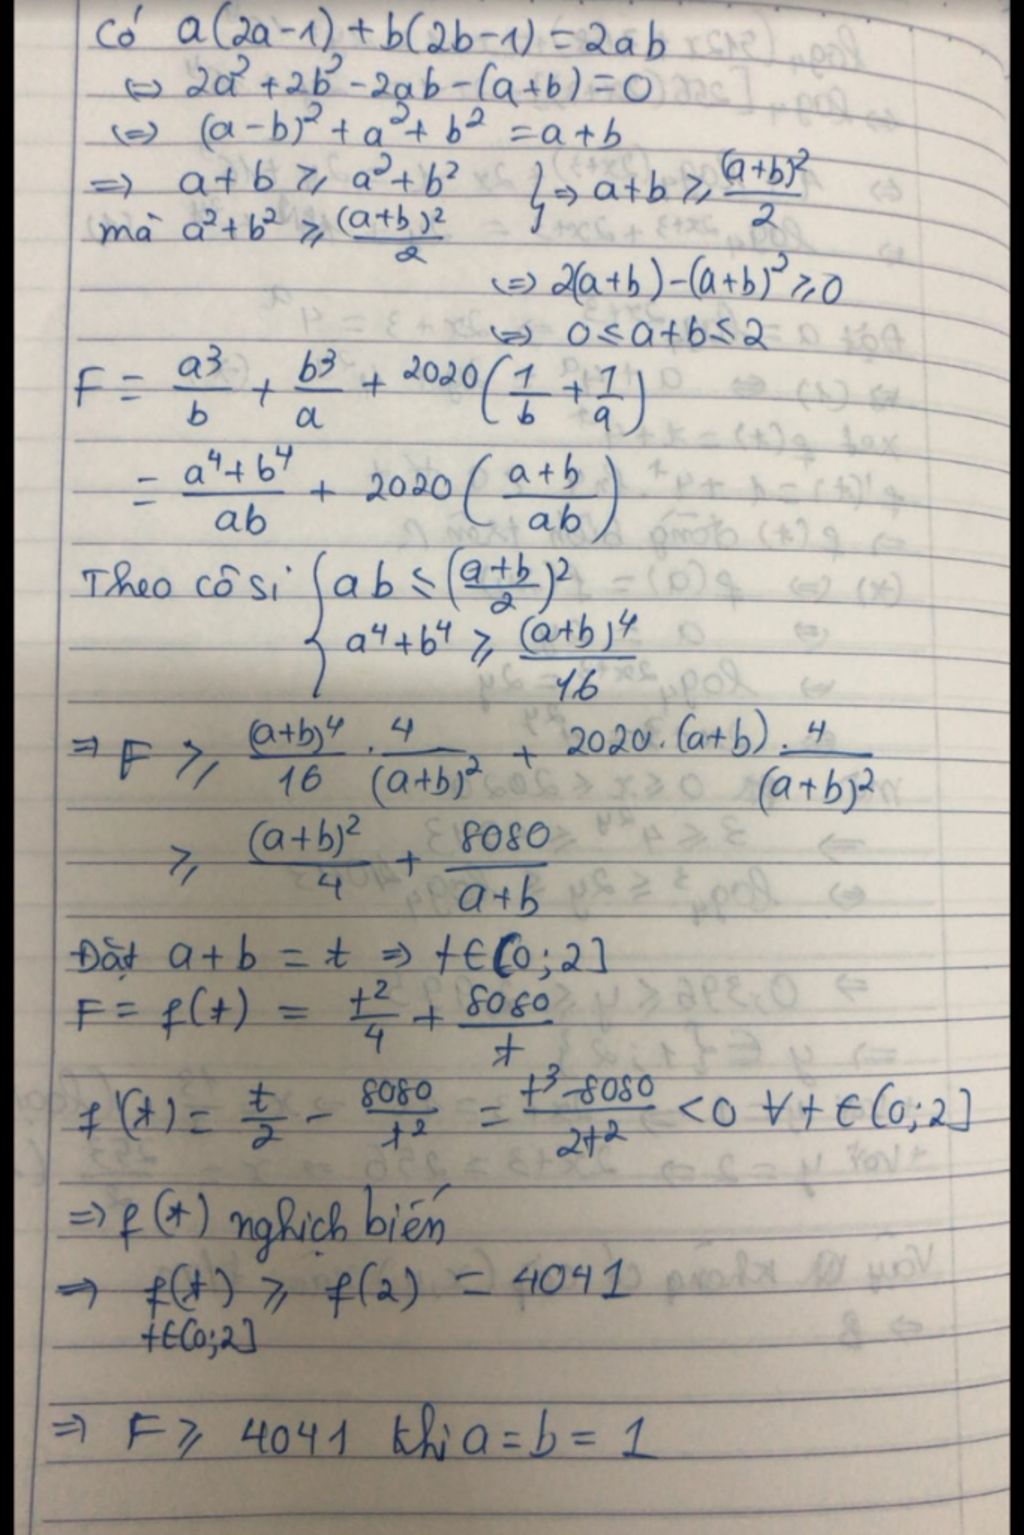 Có a(2a-1) + b(2b-1) = 2ab
⇔ 2a² + 2b² - 2ab - (a+b) = 0
⇔ (a-b)² + a² + b² = a+b
⇒ a+b ≥ a² + b² } ⇒ a+b ≥ (a+b)²/2
mà a² + b² ≥ (a+b)²/2
⇔ 2(a+b) - (a+b)² ≥ 0
⇔ 0 ≤ a+b ≤ 2
F = a³/b + b³/a + 2020(1/b + 1/a)
= (a⁴+b⁴)/ab + 2020((a+b)/ab)
Theo cô si { ab ≤ ((a+b)/2)²
a⁴+b⁴ ≥ (a+b)⁴/16
⇒ F ≥ (a+b)⁴/16 . 4/(a+b)² + 2020.(a+b) . 4/(a+b)²
≥ (a+b)²/4 + 8080/(a+b)
Đặt a+b = t ⇒ t ∈ (0;2]
F = f(t) = t²/4 + 8080/t
f'(t) = t/2 - 8080/t² = (t³-8080)/2t² < 0 ∀ t ∈ (0;2]
⇒ f(t) nghịch biến
⇒ f(t) ≥ f(2) = 4041
t∈(0;2]
⇒ F ≥ 4041 khi a = b = 1